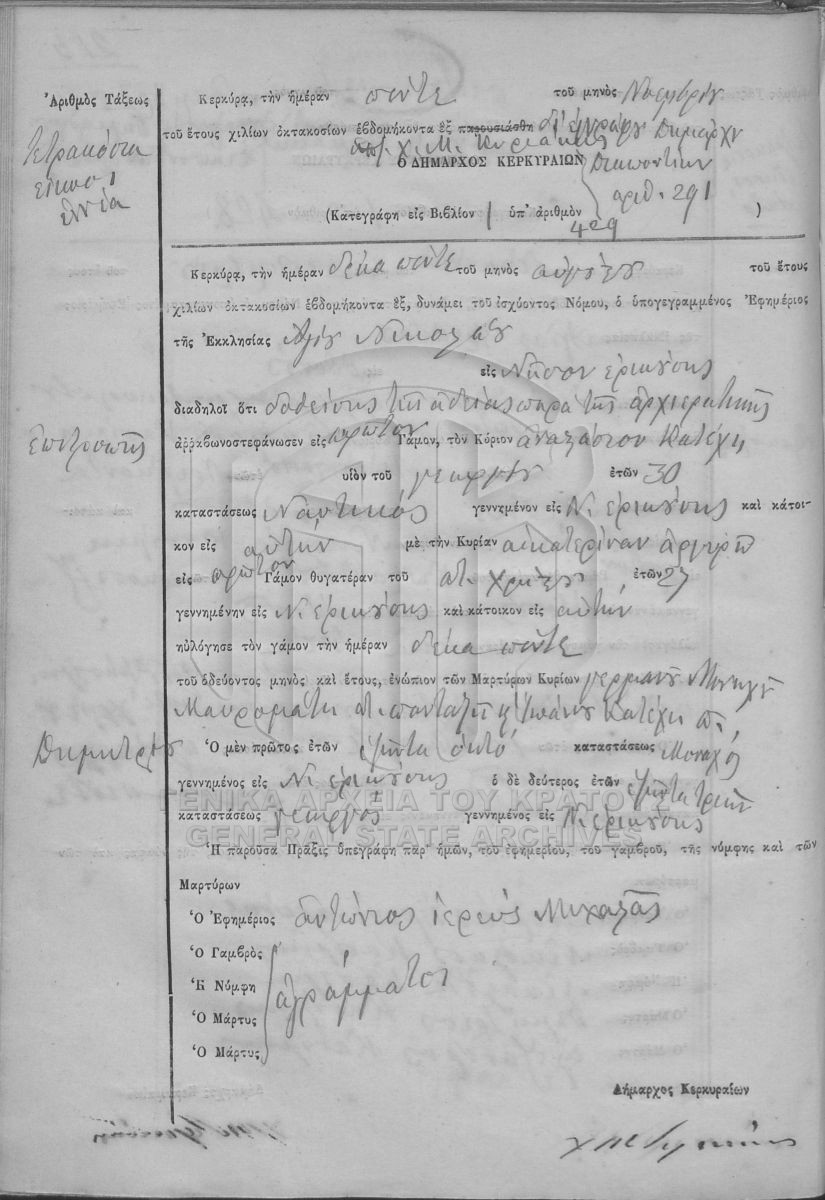 Ἀριθμὸς Τάξεως
Τετρακόσια
είκοσι
εννέα
Κερκύρᾳ, τὴν ἡμέραν πέντε τοῦ μηνὸς Νοεμβρίου
τοῦ ἔτους χιλίων ὀκτακοσίων ἑβδομήκοντα ἓξ παρουσιάσθη δι' εγγράφου Δημάρχου
Ὁ ΔΗΜΑΡΧΟΣ ΚΕΡΚΥΡΑΙΩΝ Διαποντίων
αριθ. 291
(Κατεγράφη εἰς Βιβλίον 1 ὑπ' ἀριθμὸν 429 )
Κερκύρᾳ, τὴν ἡμέραν δέκα πέντε τοῦ μηνὸς αυγούστου τοῦ ἔτους
χιλίων ὀκτακοσίων ἑβδομήκοντα ἓξ, δυνάμει τοῦ ἰσχύοντος Νόμου, ὁ ὑπογεγραμμένος Ἐφημέριος
τῆς Ἐκκλησίας Αγίου Νικολάου
εἰς Νήσον ερικούσης
διαδηλοῖ ὅτι δοθείσης της αδείας παρά της αρχιερατικής
Επιτροπής
ἀρραβωνοστεφάνωσεν εἰς πρώτον Γάμον, τὸν Κύριον αναστάσιον Κατέχη
υἱὸν τοῦ γεωργίου ἐτῶν 30
καταστάσεως Ναυτικός γεννημένον εἰς Ν. ερικούσης καὶ κάτοι-
κον εἰς αυτήν μὲ τὴν Κυρίαν αικατερίναν αργυρώ
εἰς πρώτον Γάμον θυγατέραν τοῦ ἐτῶν 27
γεννημένην εἰς Ν. ερικούσης καὶ κάτοικον εἰς αυτήν
ηὐλόγησε τὸν γάμον τὴν ἡμέραν δέκα πέντε
τοῦ ὁδεύοντος μηνὸς καὶ ἔτους, ἐνώπιον τῶν Μαρτύρων Κυρίων γερμανού Μοναχού
Μαυρομάτη Κατέχη
Δημητρίου
Ὁ μὲν πρῶτος ἐτῶν εξήντα οκτό καταστάσεως Μοναχός
γεννημένος εἰς Ν. ερικούσης ὁ δὲ δεύτερος ἐτῶν εξήντα τριών
καταστάσεως γεωργός γεννημένος εἰς Ν. ερικούσης
Ἡ παροῦσα Πρᾶξις ὑπεγράφη παρ' ἡμῶν, τοῦ ἐφημερίου, τοῦ γαμβροῦ, τῆς νύμφης καὶ τῶν
Μαρτύρων
Ὁ Ἐφημέριος αντώνιος ιερεύς Μιχαλάς
Ὁ Γαμβρὸς
Ἡ Νύμφη αγράμματοι
Ὁ Μάρτυς
Ὁ Μάρτυς
Δήμαρχος Κερκυραίων
ΓΕΝΙΚΑ ΑΡΧΕΙΑ ΤΟΥ ΚΡΑΤΟΥΣ
GENERAL STATE ARCHIVES